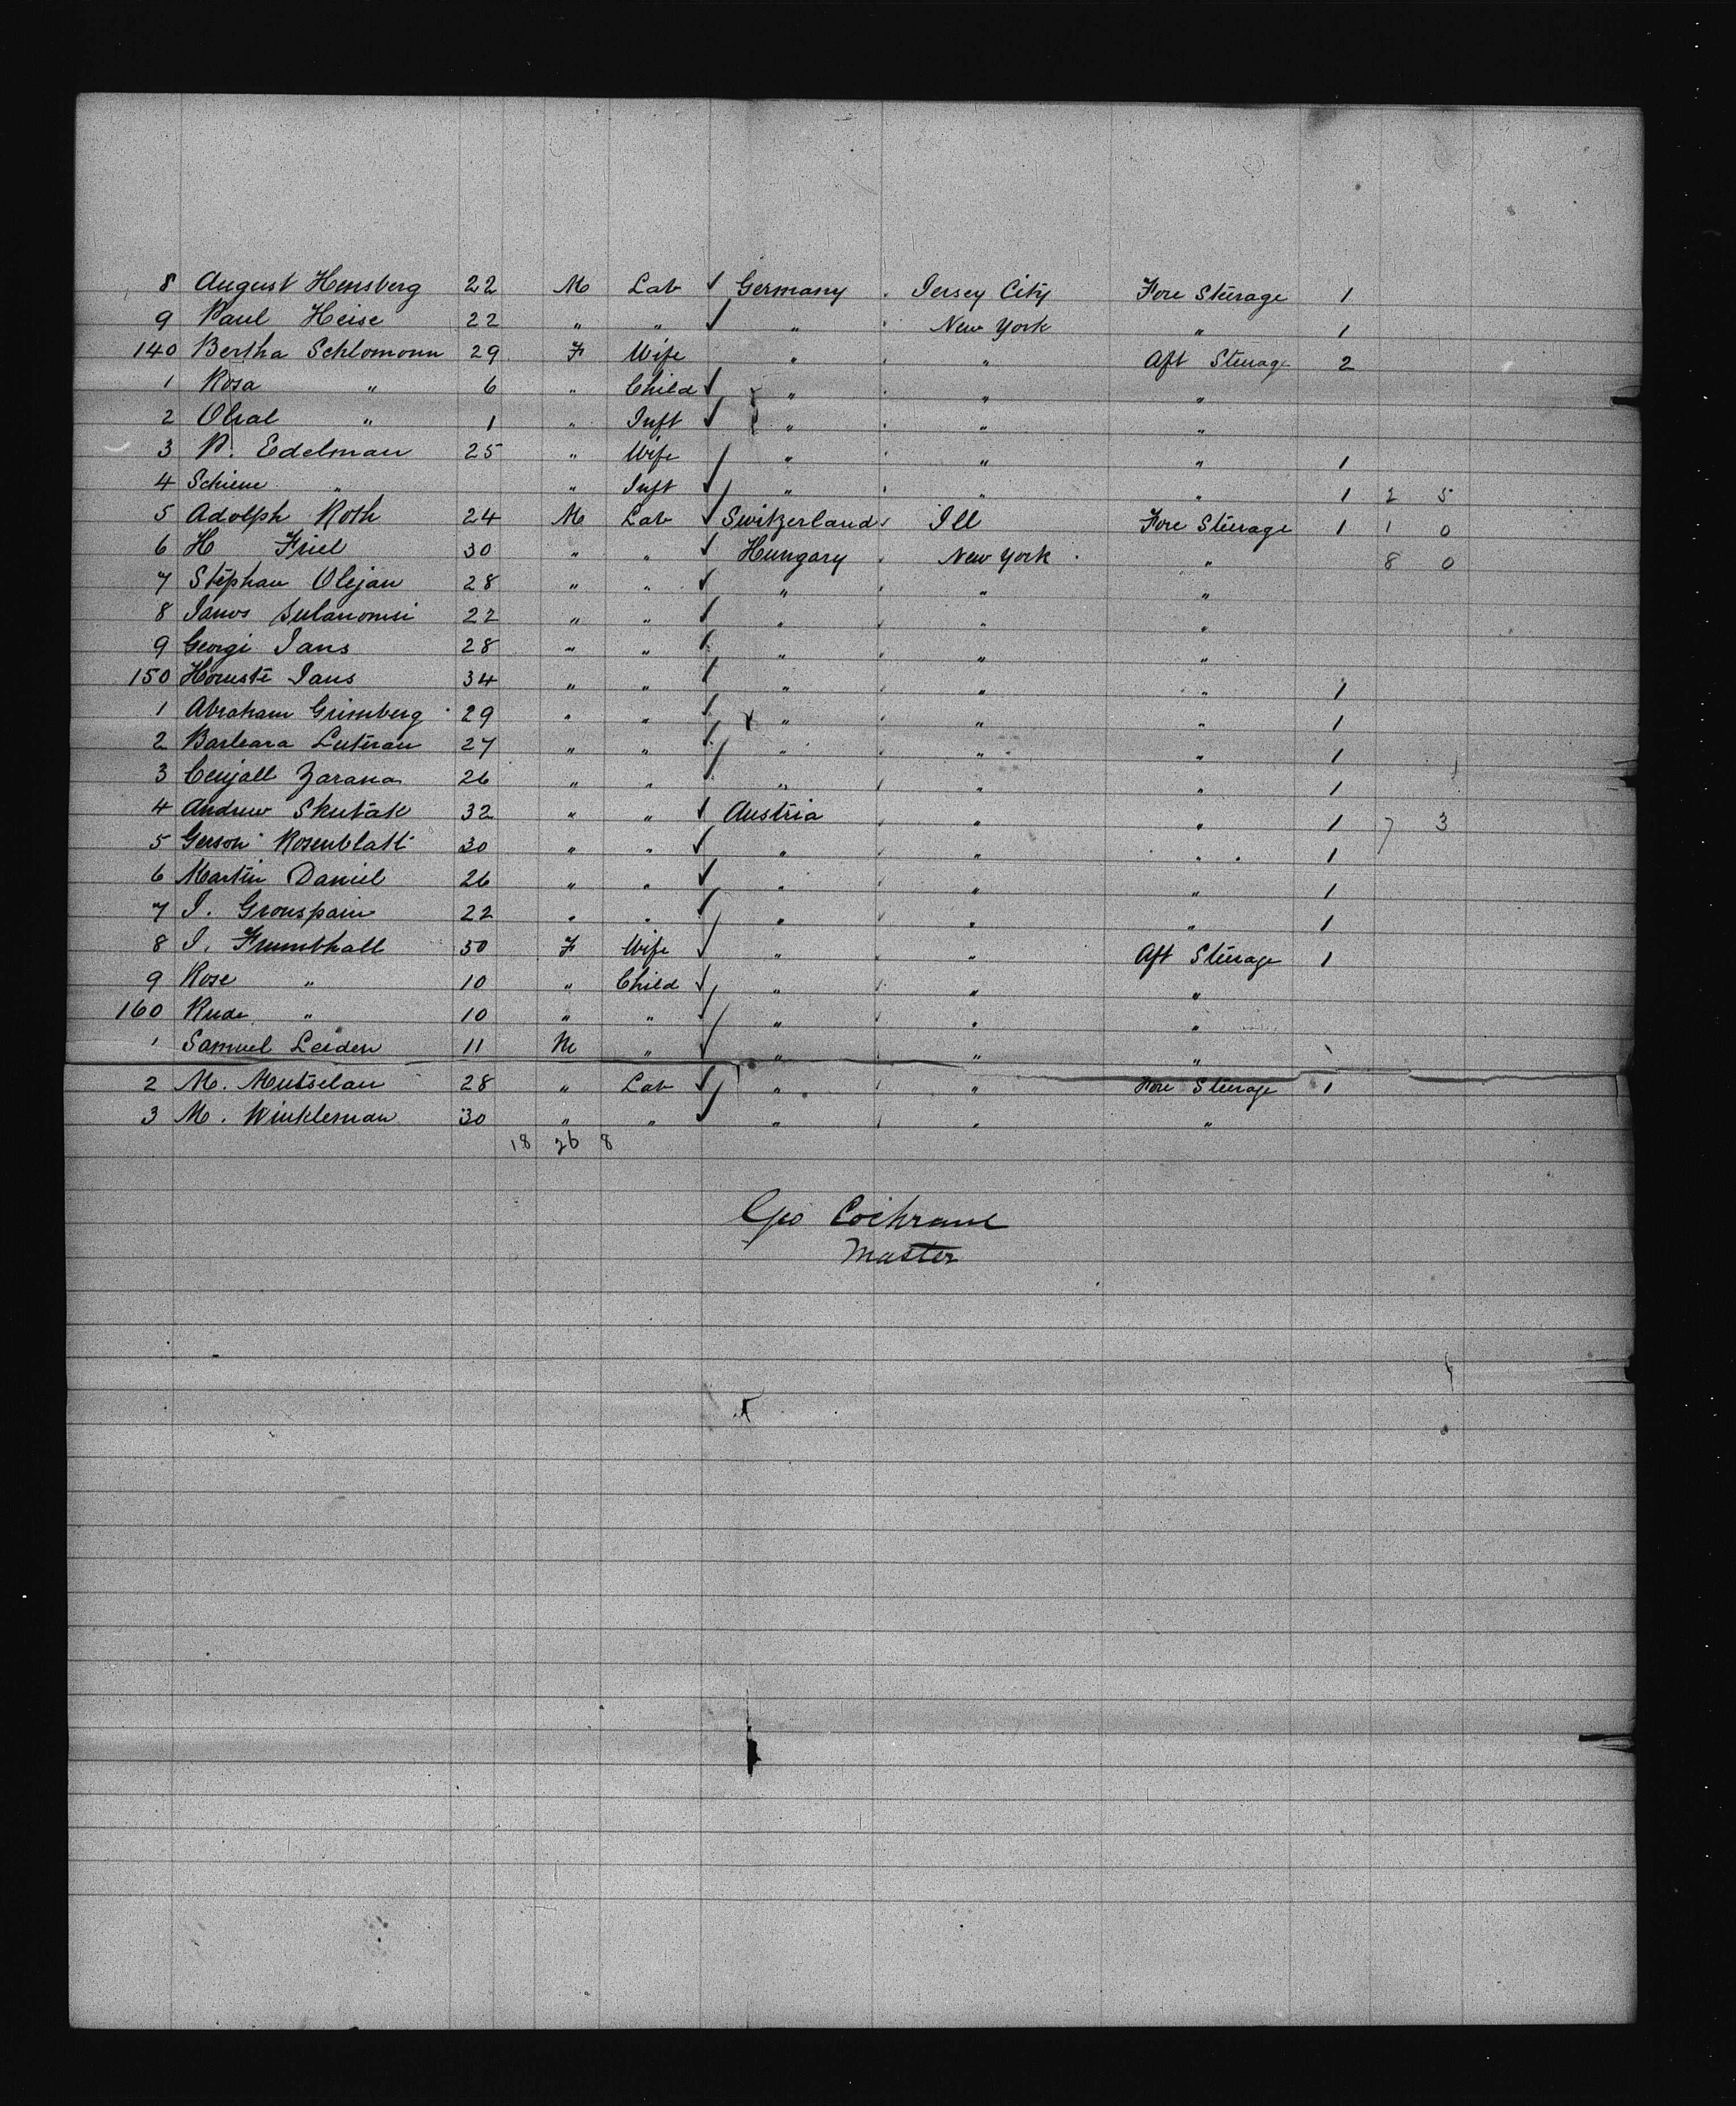 8 August Hensberg 22 M Lab Germany Jersey City Fore Steerage 1
9 Paul Heise 22 " " " New York " 1
140 Bertha Schlomonn 29 F Wife " " Aft Steerage 2
1 Rosa " 6 " Child " " "
2 " 1 " Inft " " "
3 P. Edelman 25 " Wife " " " 1
4 Schiene " " Inft " " " 1 2 5
5 Adolph Roth 24 M Lab Switzerland Ill Fore Steerage 1 1 0
6 H Friel 30 " " Hungary New York " 8 0
7 Stephan Olejan 28 " " " " "
8 Janos 22 " " " " "
9 Georgi Jans 28 " " " " "
150 Jans 34 " " " " " 1
1 Abraham Grimberg 29 " " " " " 1
2 Barbara Luteran 27 " " " " " 1
3 Zarana 26 " " " " " 1
4 Andrew Skutak 32 " " Austria " " 1 7 3
5 Gerson Rosenblatt 30 " " " " " 1
6 Martin Daniel 26 " " " " " 1
7 I. Gronspain 22 " " " " " 1
8 I. Frumthall 50 F Wife " " Aft Steerage 1
9 Rose " 10 " Child " " "
160 Rude " 10 " " " " "
1 Samuel Leiden 11 M " " " "
2 M. Mutselan 28 " Lab " " Fore Steerage 1
3 M. Winkleman 30 " " " " "
18 26 8
Geo Cochrane
Master